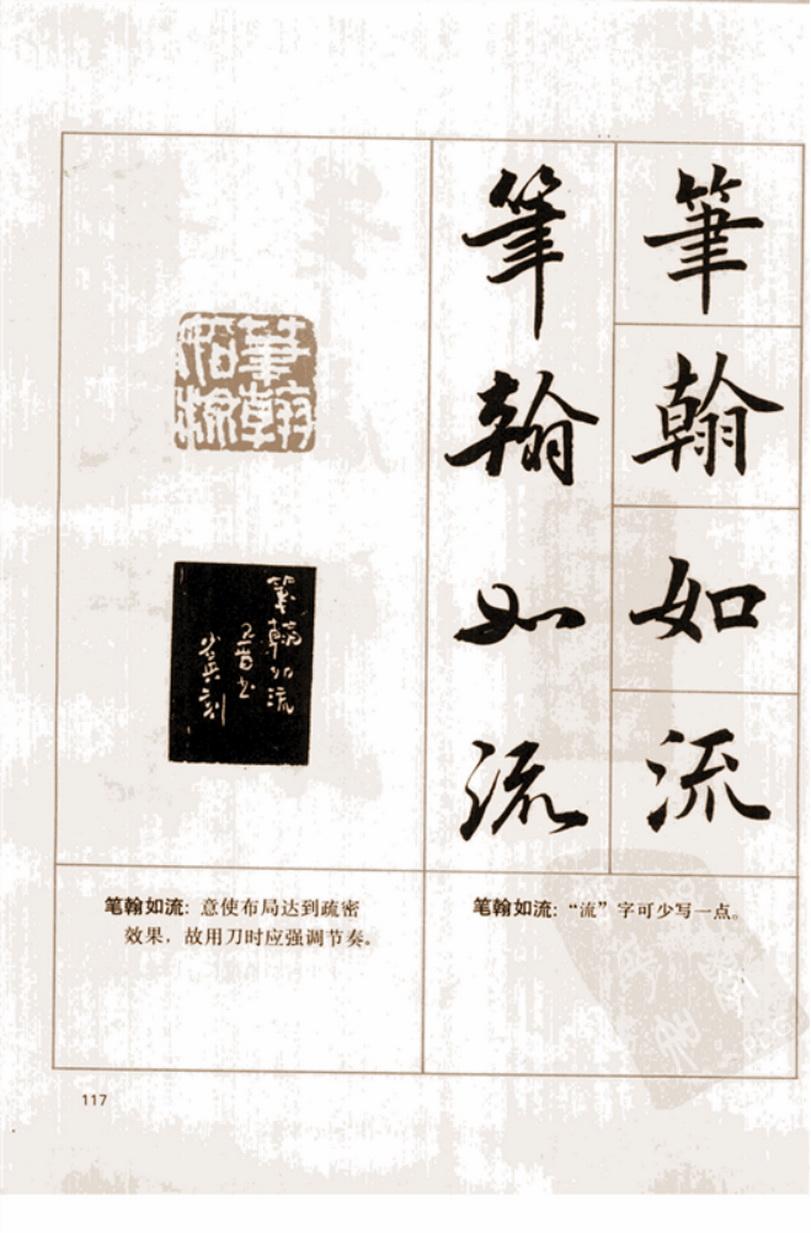 筆
翰
如
流
筆
翰
如
流
筆翰
如流
筆翰如流
刻
笔翰如流：意使布局达到疏密
效果，故用刀时应强调节奏。
笔翰如流：“流”字可少写一点。
117